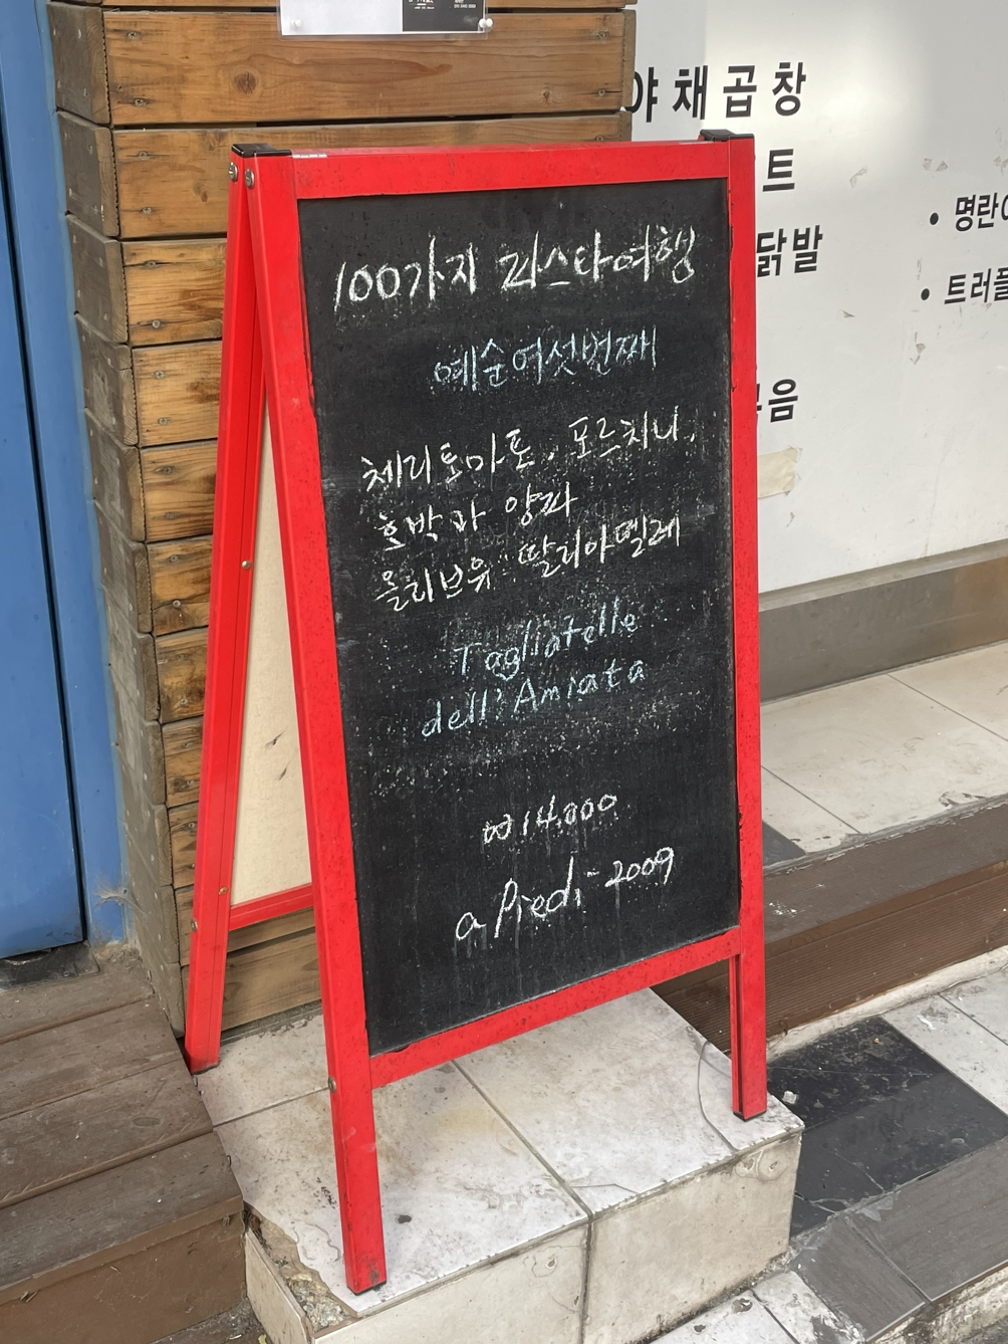 100가지 파스타여행
예순여섯번째
체리토마토, 포르치니,
호박과 양파
올리브유 딸리아뗄레
Tagliatelle
dell'Amiata
₩14,000
a Piedi-2009
야채곱창
트
닭발
음
• 명란
• 트러플